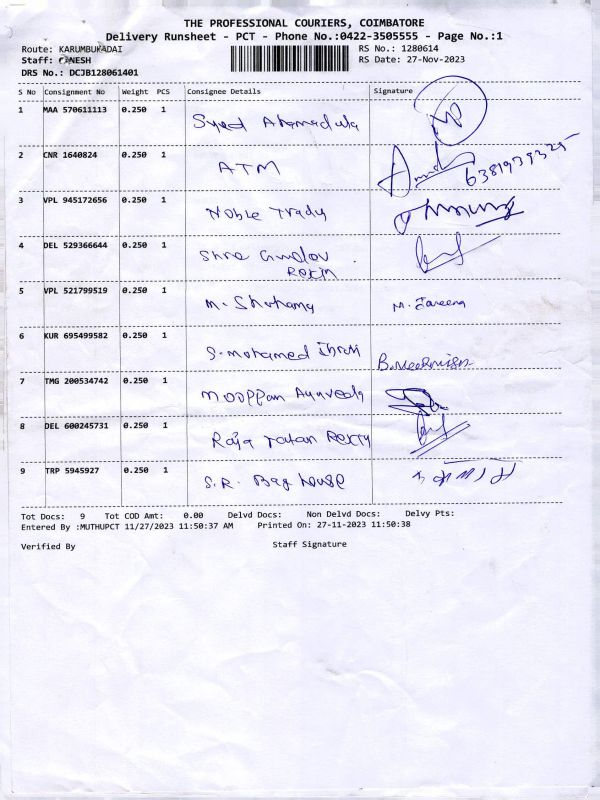 THE PROFESSIONAL COURIERS, COIMBATORE
Delivery Runsheet - PCT - Phone No.:0422-3505555 - Page No.:1
Route: KARUMBUKADAI RS No.: 1280614
Staff: GANESH RS Date: 27-Nov-2023
DRS No.: DCJB128061401
S No Consignment No Weight PCS Consignee Details Signature
1 MAA 570611113 0.250 1 Syed Ahamadulla
2 CNR 1640824 0.250 1 ATM 6381939325
3 VPL 945172656 0.250 1 Noble Trady
4 DEL 529366644 0.250 1 Shree
5 VPL 521799519 0.250 1 M. Shahama M. Zareena
6 KUR 695499582 0.250 1 S. Mohamed
7 TMG 200534742 0.250 1 Mooppan Ayurveda
8 DEL 600245731 0.250 1 Raja Ratan
9 TRP 5945927 0.250 1 S.R. Bag house
Tot Docs: 9 Tot COD Amt: 0.00 Delvd Docs: Non Delvd Docs: Delvy Pts:
Entered By :MUTHUPCT 11/27/2023 11:50:37 AM Printed On: 27-11-2023 11:50:38
Verified By Staff Signature